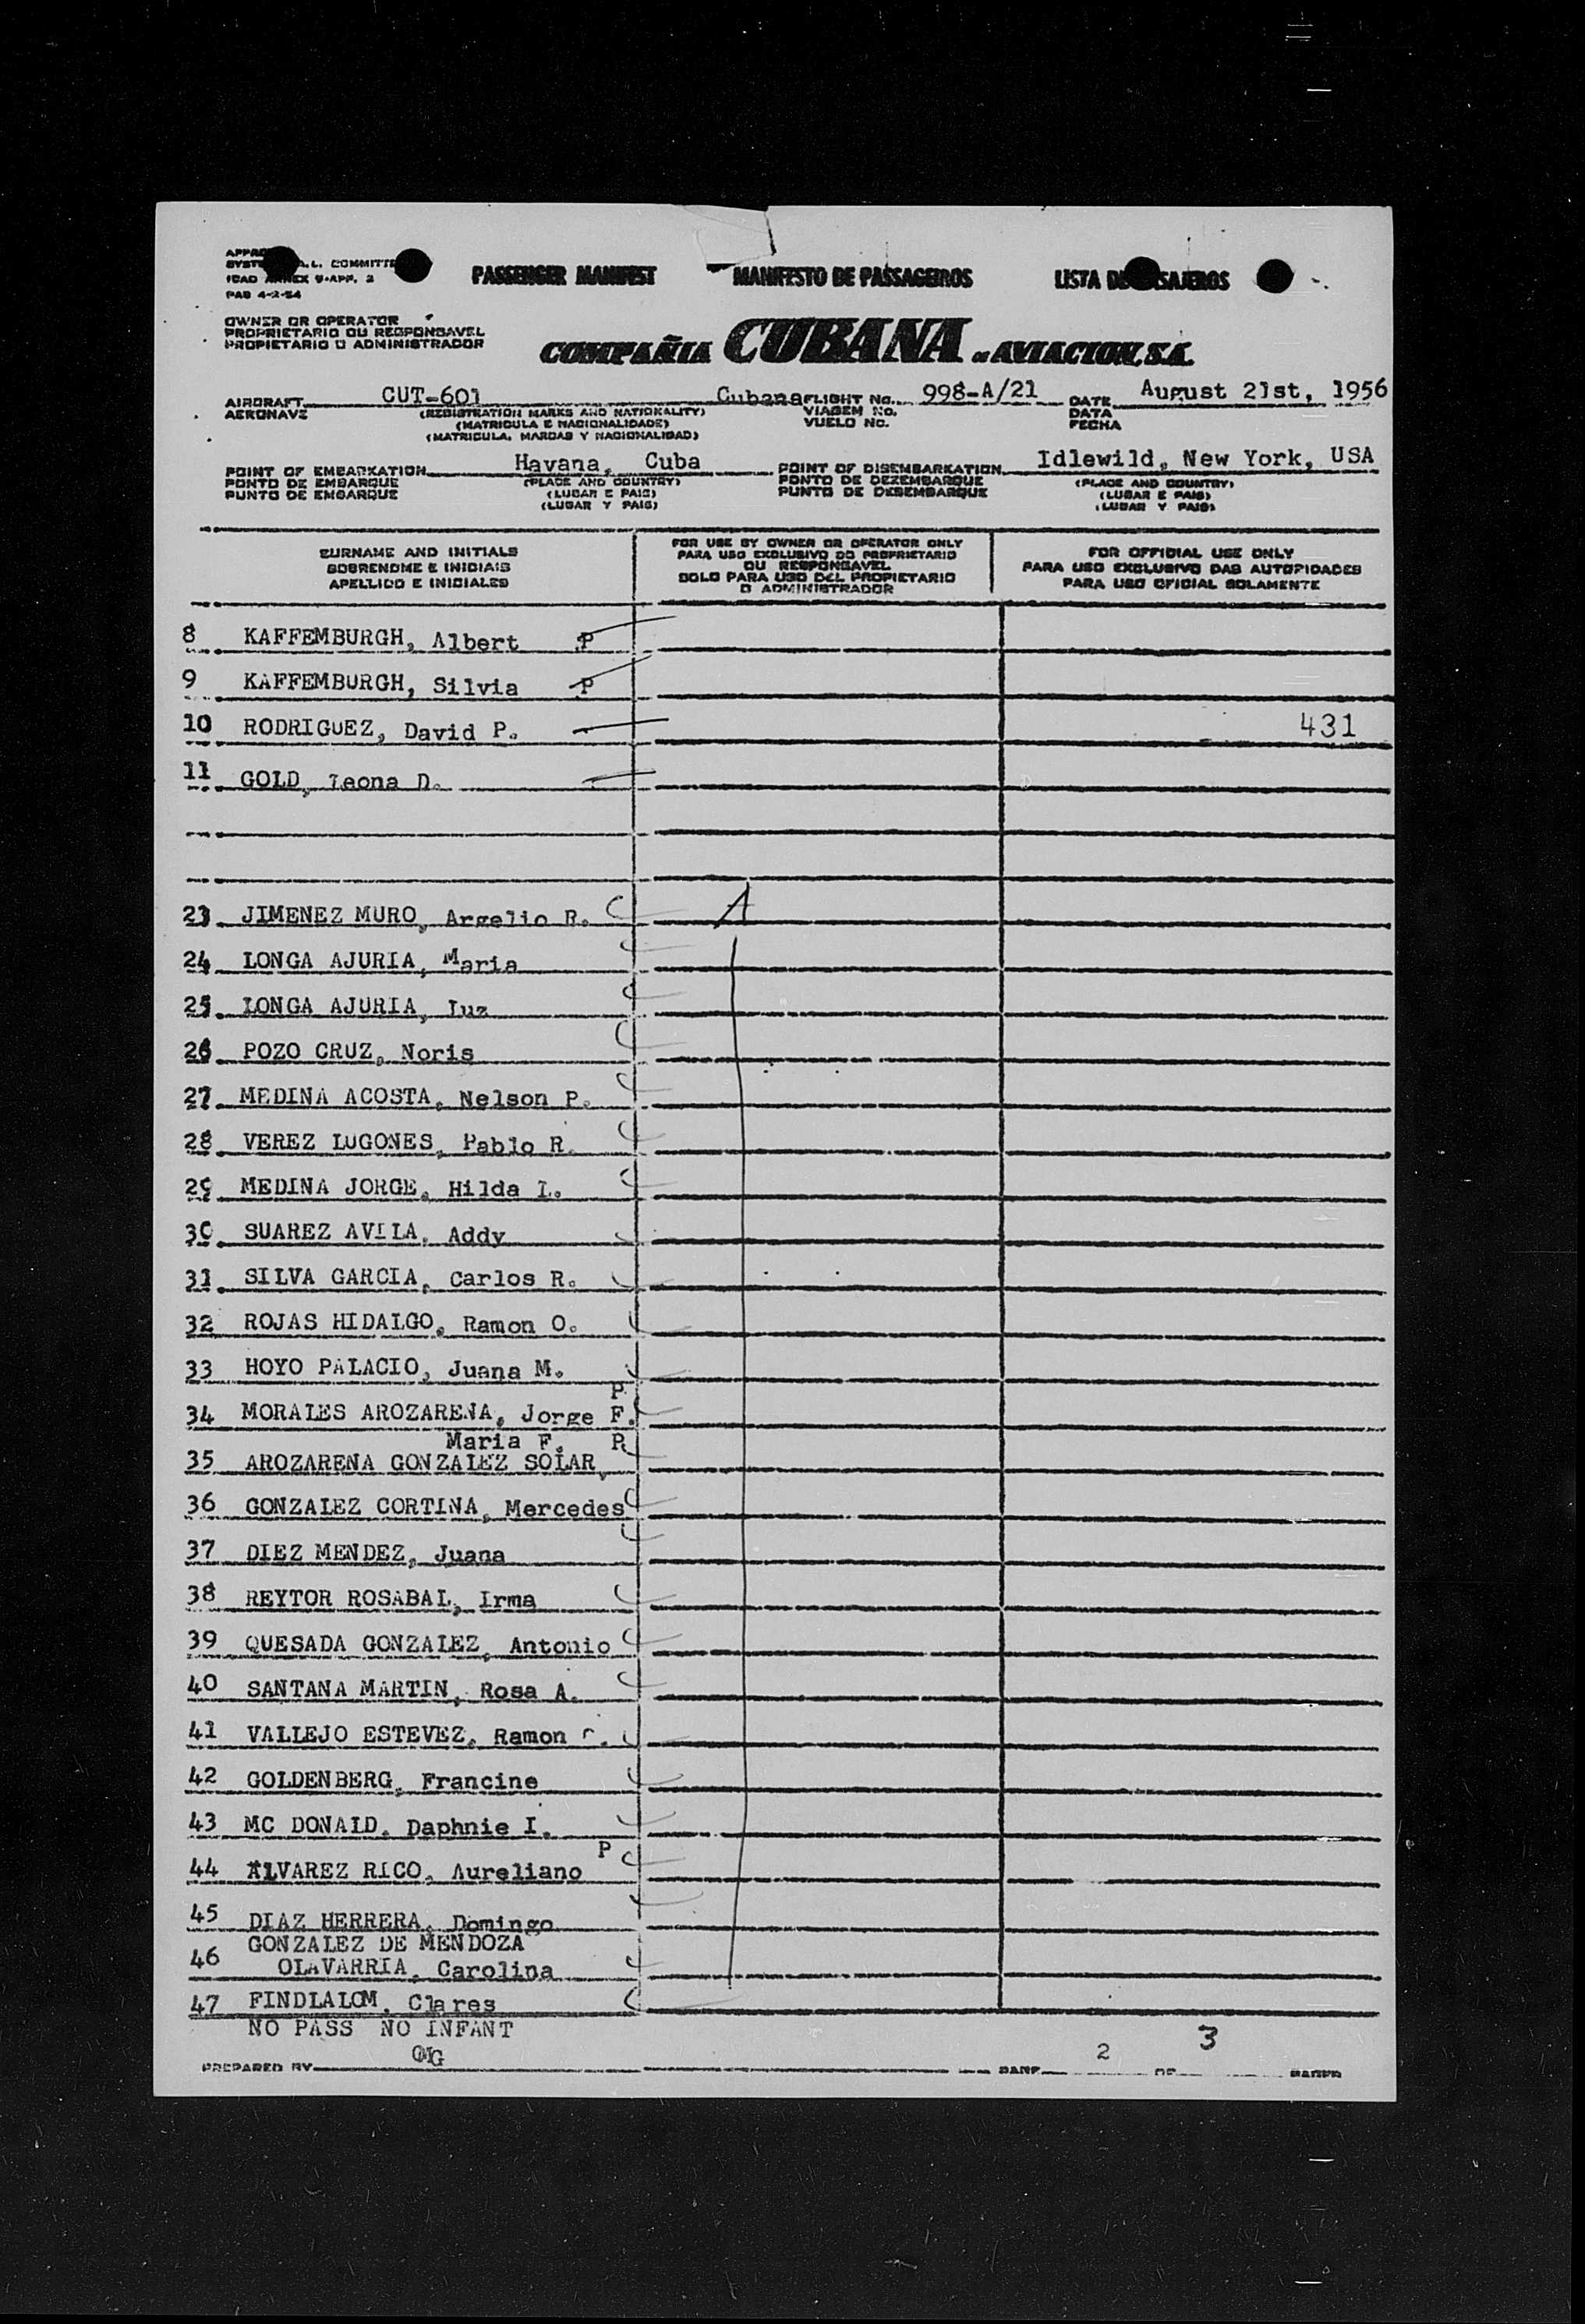 ICAO ANNEX 9-APP. 2
PAB 4-2-54
PASSENGER MANIFEST MANIFESTO DE PASSAGEIROS LISTA DE
OWNER OR OPERATOR
PROPRIETARIO OU RESPONSAVEL
PROPIETARIO U ADMINISTRADOR
COMPAÑIA CUBANA DE AVIACION, S.A.
AIRCRAFT CUT-601 Cubana FLIGHT No. 998-A/21 DATE August 21st, 1956
AERONAVE (REGISTRATION MARKS AND NATIONALITY) VIAGEM No. DATA
(MATRICULA E NACIONALIDADE) VUELO No. FECHA
(MATRICULA, MARCAS Y NACIONALIDAD)
POINT OF EMBARKATION Havana, Cuba POINT OF DISEMBARKATION Idlewild, New York, USA
PONTO DE EMBARQUE (PLACE AND COUNTRY) PONTO DE DEZEMBARQUE (PLACE AND COUNTRY)
PUNTO DE EMBARQUE (LUGAR E PAIS) PUNTO DE DESEMBARQUE (LUGAR E PAIS)
(LUGAR Y PAIS) (LUGAR Y PAIS)
SURNAME AND INITIALS
SOBRENOME E INICIAIS
APELLIDO E INICIALES
FOR USE BY OWNER OR OPERATOR ONLY
PARA USO EXCLUSIVO DO PROPRIETARIO
OU RESPONSAVEL
SOLO PARA USO DEL PROPIETARIO
O ADMINISTRADOR
FOR OFFICIAL USE ONLY
PARA USO EXCLUSIVO DAS AUTORIDADES
PARA USO OFICIAL SOLAMENTE
8 KAFFEMBURGH, Albert P
9 KAFFEMBURGH, Silvia P
10 RODRIGUEZ, David P. 431
11 GOLD, Leona D.
23 JIMENEZ MURO, Argelio R.
24 LONGA AJURIA, Maria
25 LONGA AJURIA, Luz
26 POZO CRUZ, Noris
27 MEDINA ACOSTA, Nelson P.
28 VEREZ LUGONES, Pablo R.
29 MEDINA JORGE, Hilda L.
30 SUAREZ AVILA, Addy
31 SILVA GARCIA, Carlos R.
32 ROJAS HIDALGO, Ramon O.
33 HOYO PALACIO, Juana M.
P
34 MORALES AROZARENA, Jorge F.
Maria F. P
35 AROZARENA GONZALEZ SOLAR,
36 GONZALEZ CORTINA, Mercedes
37 DIEZ MENDEZ, Juana
38 REYTOR ROSABAL, Irma
39 QUESADA GONZALEZ, Antonio
40 SANTANA MARTIN, Rosa A.
41 VALLEJO ESTEVEZ, Ramon
42 GOLDENBERG, Francine
43 MC DONALD, Daphnie I.
P
44 ALVAREZ RICO, Aureliano
45 DIAZ HERRERA, Domingo
GONZALEZ DE MENDOZA
46 OLAVARRIA, Carolina
47 FINDLALOM, Clares
NO PASS NO INFANT
PREPARED BY OMG PAGE 2 OF 3 PAGES